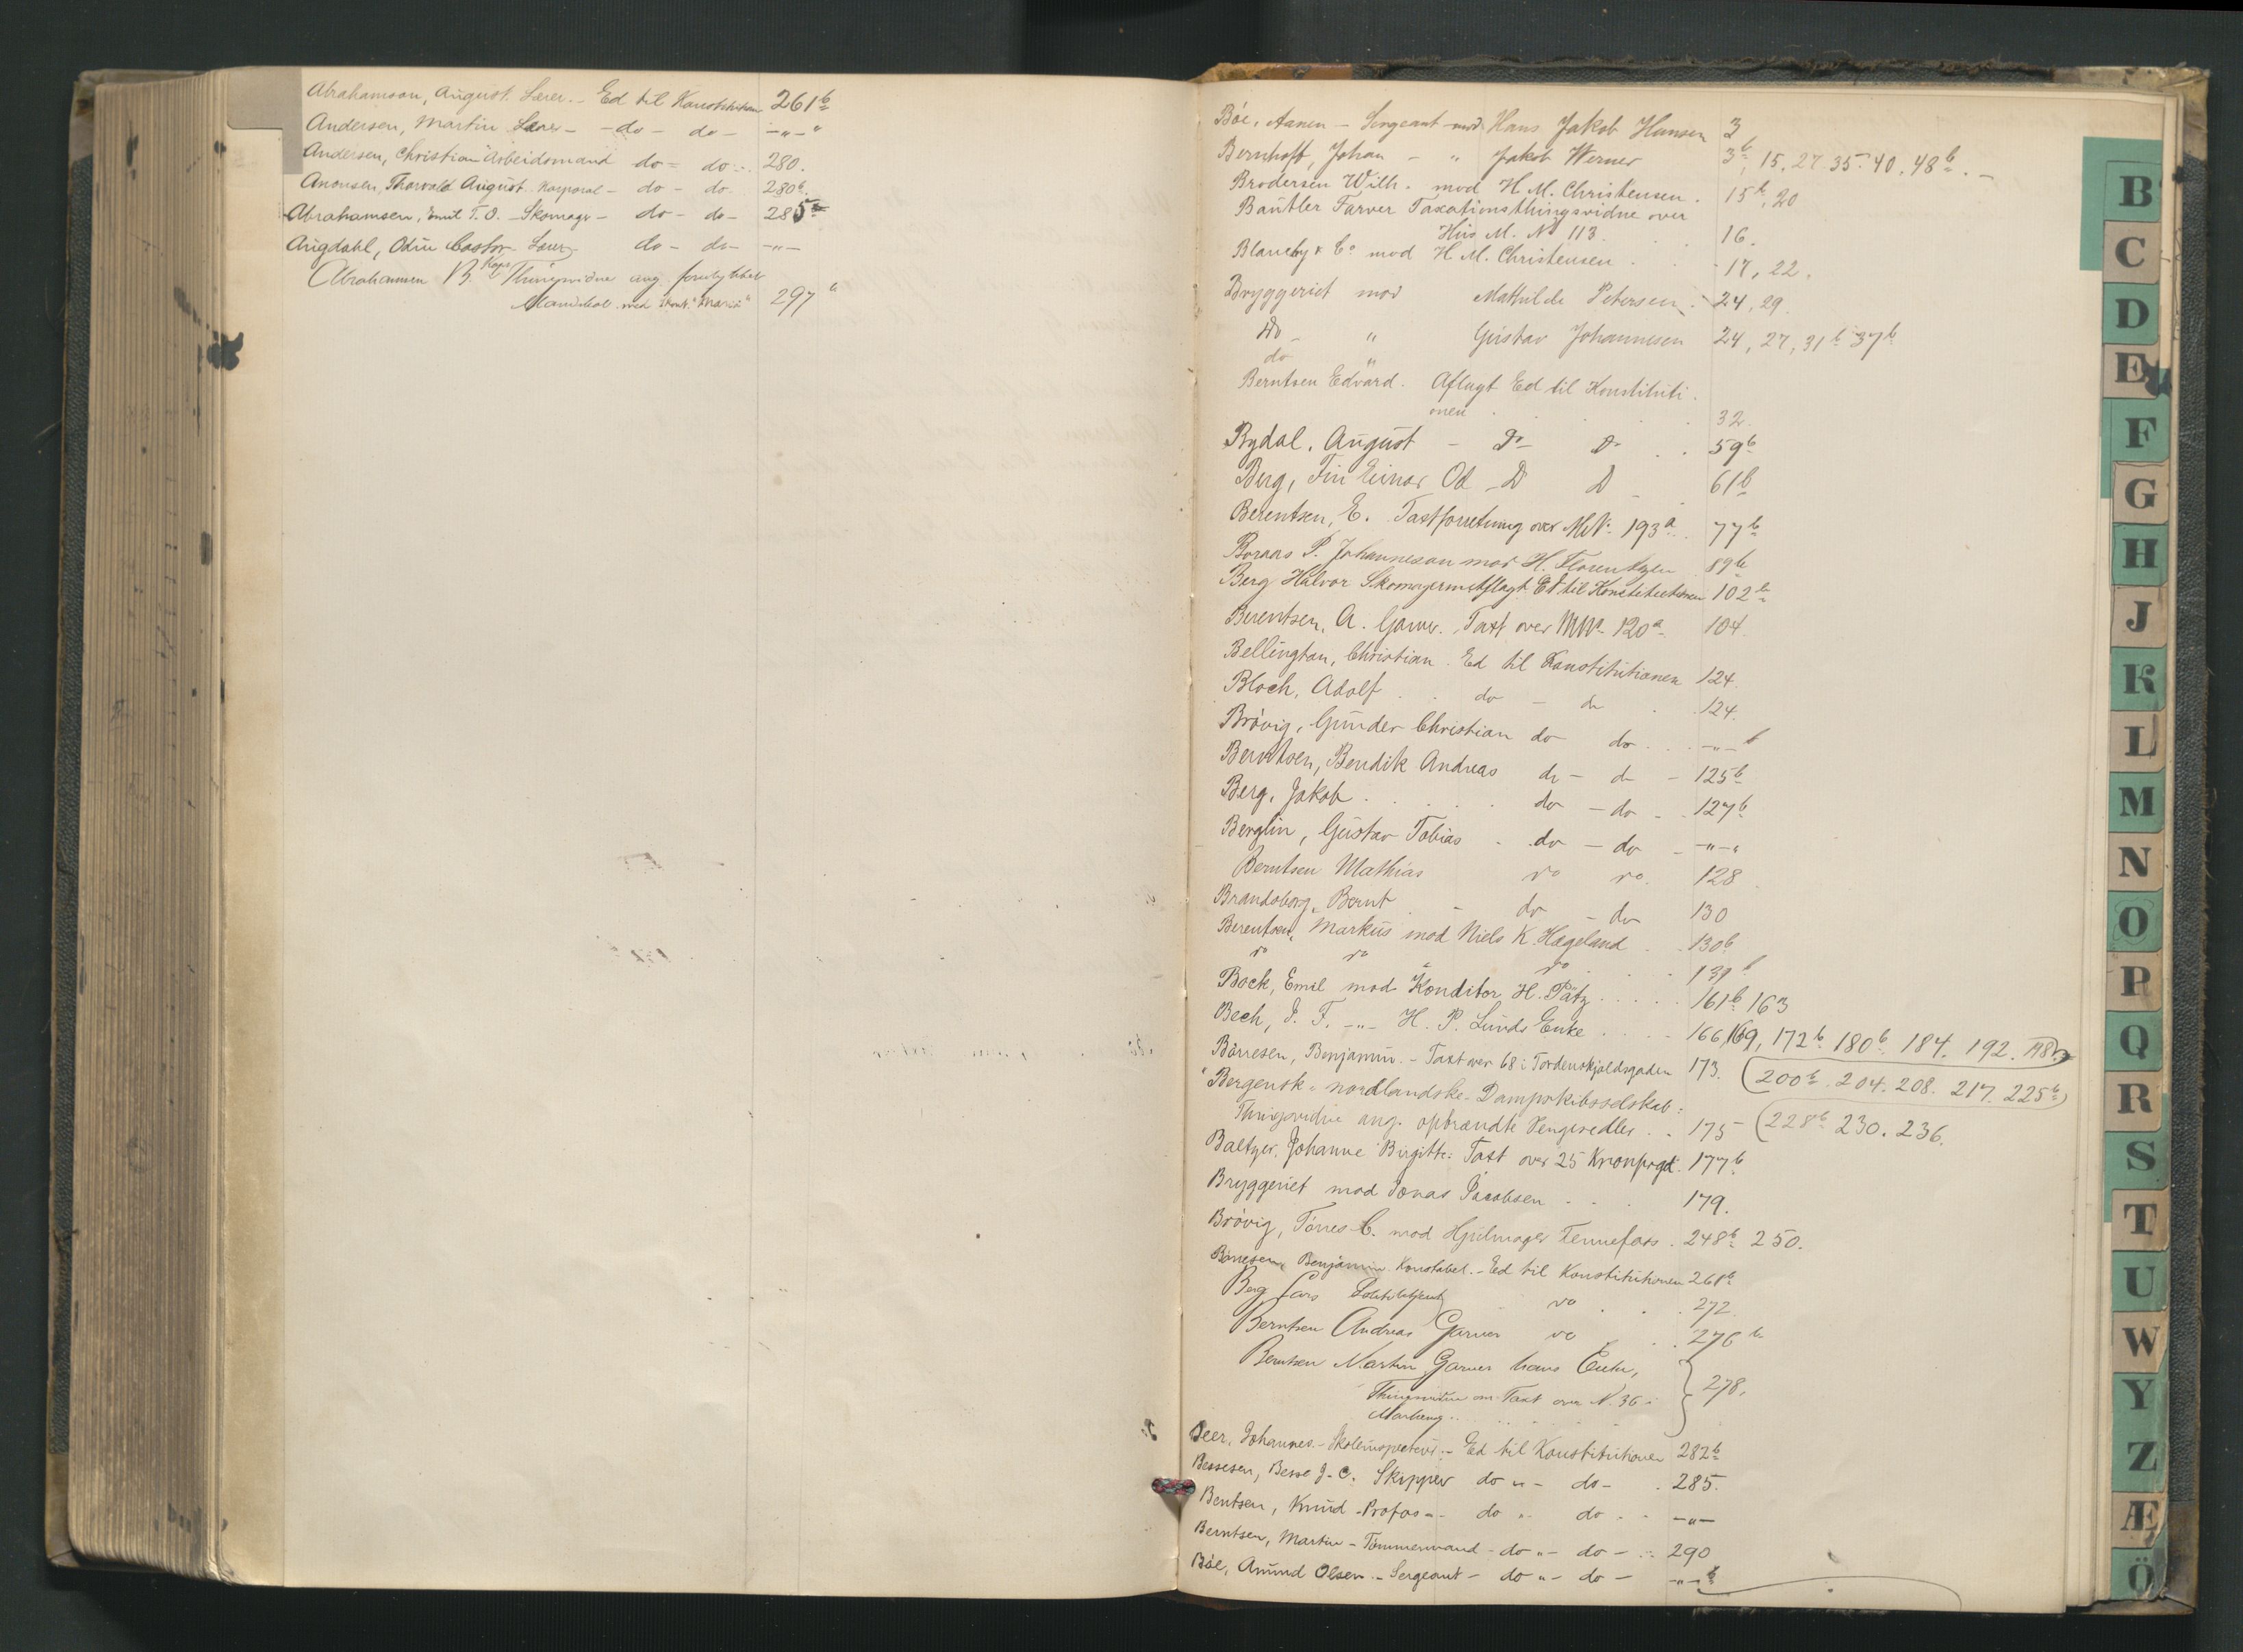 Abrahamson, August. Lærer. - Ed til Konstitution 261b
Andersen, Martin Lærer - - do - do - -"-"
Andersen, Christian Arbeidsmand do - do - 280.
Anonsen, Thorvald August. Korporal - do - do. 280b.
Abrahamsen, Emil T. O. - Skomager - do - do - 285b
Augdahl, Odin Castor Lærer do - do -"-
Abrahamsen B. Kapt Thingsvidne ang. forulykket
Mandskab med Skont. "Maria" 297b
Böe, Aanen - Sergeant mod Hans Jakob Hansen 3
Bernhoft, Johan - " Jakob Werner 3b, 15. 27. 35. 40. 48b. -
Brodersen Wilh. mod H. M. Christensen. 15b, 20
Bautler Farver Taxationsthingsvidne over
Hus M. No 113. 16.
Blauchy & Co mod H. M. Christensen 17, 22.
Bryggeriet mod Mathilde Petersen. 24, 29.
Do - " Gustav Johannesen 24, 27, 31b 37b
do "
Berntsen Edvard. Aflagt Ed til Konstituti-
onen 32.
Bydal, August - Do Do 59b
Berg, Fin Einar Od - D D 61b
Berentsen, E. Taxtforretning over MN. 193a. 77b
Boraas P. Johanneson mod H. Florentzen 89b
Berg Halvor Skomagerm Aflagt Ed til Konstitutionen 102b
Berentsen, A. Garver. Taxt over MNo. 120a 104.
Bellington, Christian. Ed til Konstitutionen 124.
Bloch, Adolf. do - do 124.
Brövig, Gunder Christian do do -"- b
Berntsen, Bendik Andreas do - do - 125b
Berg, Jakob. do - do - 127b
Berglin, Gustav Tobias - do - do -"-"
Berntsen Mathias do do. 128
Brandsborg, Bernt - do - do 130
Berentsen, Markus mod Niels K. Hægeland 130b
do do do 139b
Bock, Emil mod Konditor H. Pätz 161b 163
Bech, J. F. -"- H. P. Lunds Enke 166, 169, 172b 180b. 184. 192. 198b
Börresen, Benjamin. - Taxt over 68 i Tordenskjoldsgaden 173. (200b. 204. 208. 217. 225b)
Bergensk - nordlandske - Dampskibsselskab:
Thingsvidne ang. opbrændte Pengesedler. 175 (228b 230. 236.
Baltzer, Johanne Birgitte: Taxt over 25 Kronprgd. 177b
Bryggeriet mod Jonas Jacobsen 179.
Brövig, Tönnes C. mod Hjulmager Tennefoss. 248b 250.
Börresen, Benjamin. Konstabel. - Ed til Konstitutionen 261b
Berg Lars do 272.
Berntsen Andreas Garver do 276b
Berntsen Martin Garver hans Enke,
Thingsvidne om Taxt over N. 36 i 278.
Beer, Johannes. - Skoleinspecteur. - Ed til Konstitutionen 282b
Bessesen, Besse J. C. Skipper do " - do - 285.
Bentsen, Knud - Profos - do " do - -"-
Berntsen, Martin - Tömmermand - do " - do - 290
Böe, Amund Olsen. - Sergeant - do " - do - -"- b
B
C
D
E
F
G
H
J
K
L
M
N
O
P
Q
R
S
T
U
W
Y
Z
Æ
Ö